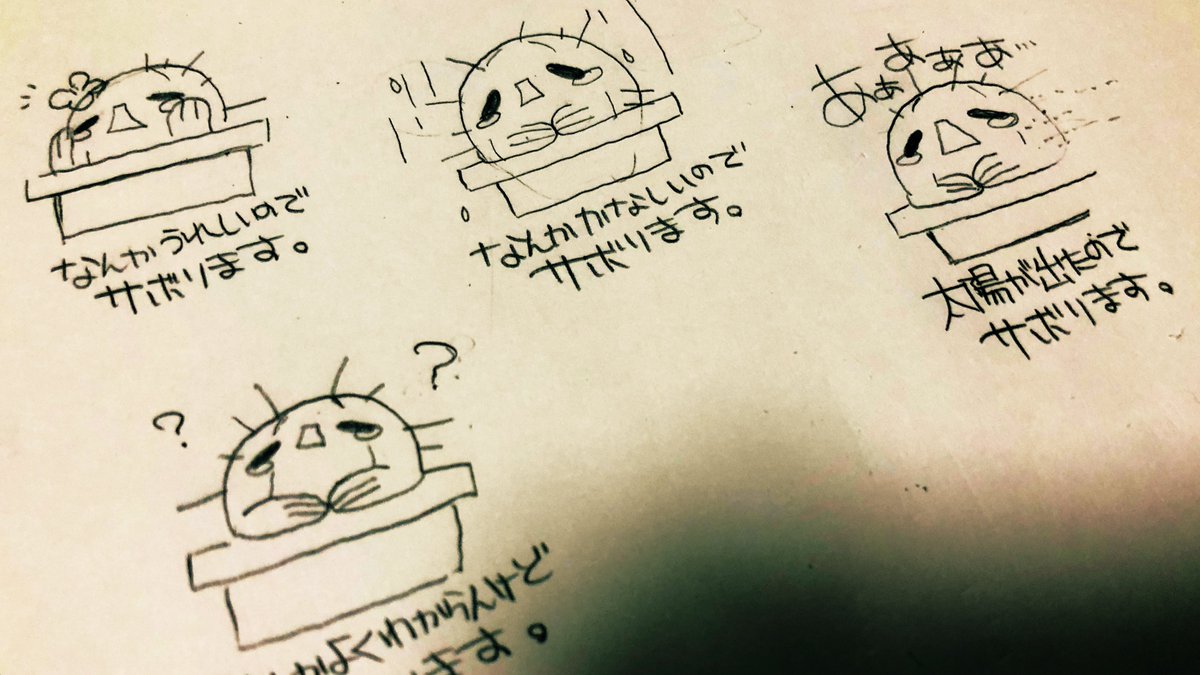 なんかうれしいので
サボります。
なんかかなしいので
サボります。
あぁあぁあ…
太陽が出たので
サボります。
?
?
かよくわからんけど
ます。